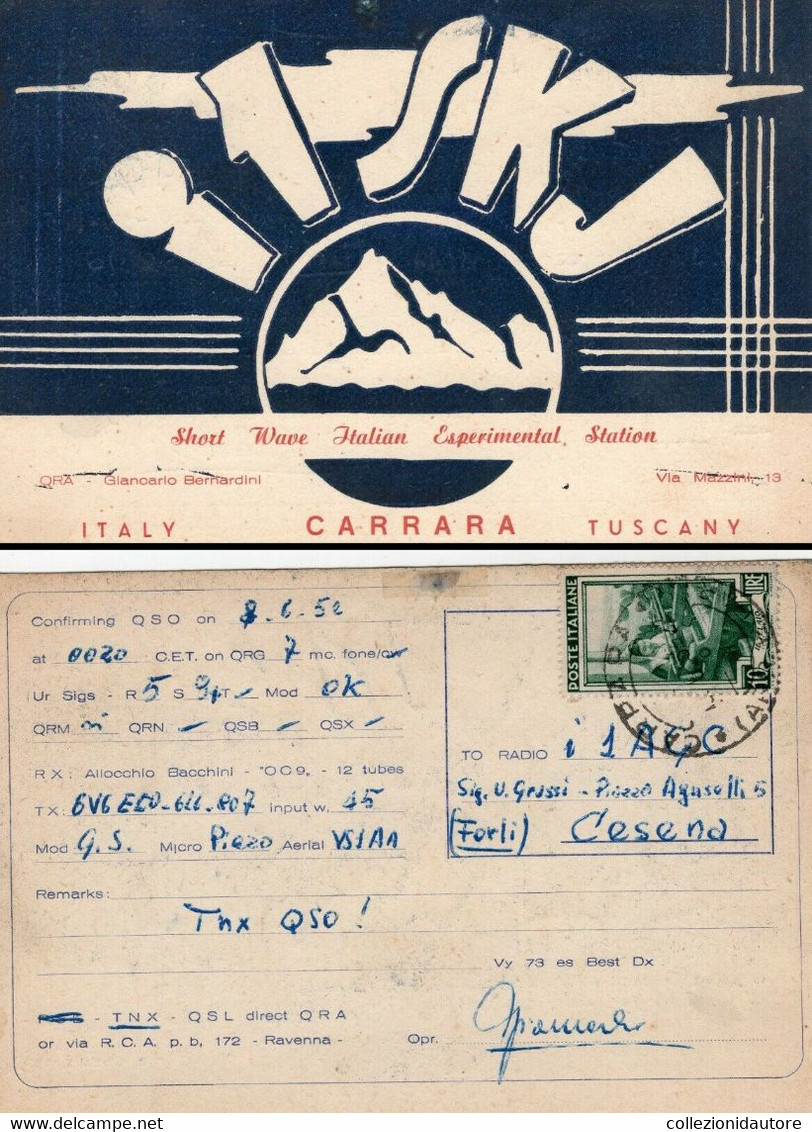 i1SKJ
Short Wave Italian Esperimental Station
QRA - Giancarlo Bernardini Via Mazzini, 13
ITALY CARRARA TUSCANY
POSTE ITALIANE
LIRE
10
Confirming QSO on 8.6.52
at 0020 C.E.T. on QRG 7 mc. fone/cw
Ur Sigs - R 5 S 9+ T - Mod OK
QRM QRN - QSB - QSX -
RX: Allocchio Bacchini - "OC9" - 12 tubes
TX: 6V6 ECO-6L6-807 input w. 45
Mod G.S. Micro Piezo Aerial VS1AA
Remarks:
Tnx QSO!
TO RADIO i 1AGC
Sig. U. Grassi - Piazza Aguselli 5
(Forlì) Cesena
Vy 73 es Best Dx
- TNX - QSL direct QRA
or via R.C.A. p.b, 172 - Ravenna - Opr.
Delcampe.net
collezionidautore